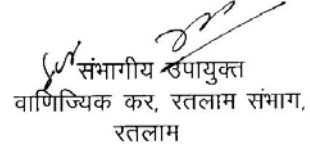 संभागीय उपायुक्त
वाणिज्यिक कर, रतलाम संभाग,
रतलाम